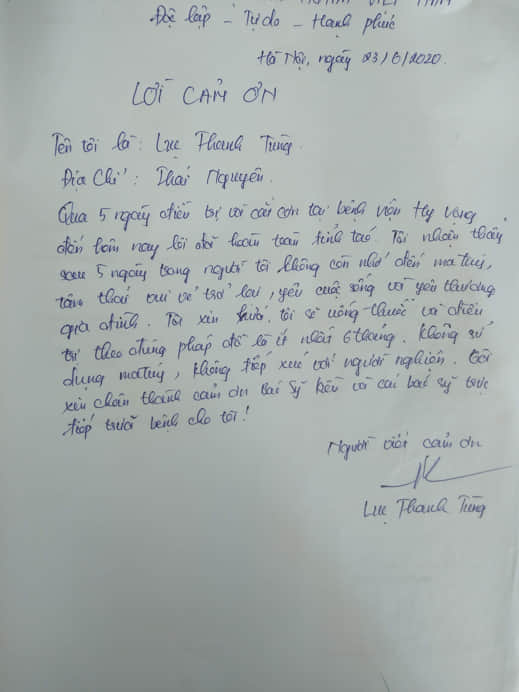 VIỆT NAM
Độc lập - Tự do - Hạnh phúc
Hà Nội, ngày 23/6/2020.
LỜI CẢM ƠN
Tên tôi là: Lục Thanh Tùng.
Địa chỉ: Thái Nguyên.
Qua 5 ngày điều trị và cắt cơn tại bệnh viện Hy Vọng
đến hôm nay tôi đã hoàn toàn tỉnh táo. Tôi nhận thấy
sau 5 ngày trong người tôi không còn nhớ đến ma túy,
tâm thái vui vẻ trở lại, yêu cuộc sống và yêu thương
gia đình. Tôi xin hứa. tôi sẽ uống thuốc và điều
trị theo đúng pháp đồ là ít nhất 6 tháng. Không sử
dụng ma túy, không tiếp xúc với người nghiện. Tôi
xin chân thành cảm ơn bác sỹ và các bác sỹ trực
tiếp trưã bệnh cho tôi!
Người viết cảm ơn
Lục Thanh Tùng